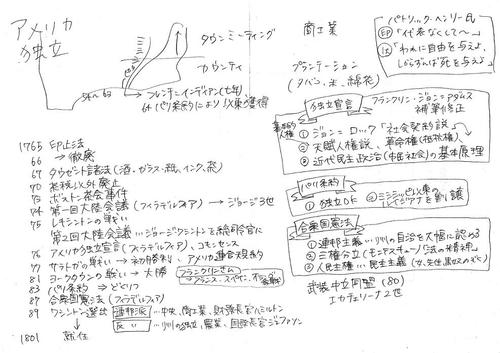 アメリカ
独立
タウンミーティング
カウンティ
54~63
フレンチ=インディアン(七年)
63 パリ条約により以東獲得
商工業
プランテーション
(タバコ、米、綿花)
パトリック・ヘンリー氏
EP「代表なくして~」
「われに自由を与えよ、
しからずんば死を与えよ」
1765 EP止法
66 →撤廃
67 タウゼント諸法(酒・ガラス・紙、インク、茶)
70 茶税以外廃止
73 ボストン茶会事件
74 第一回大陸会議(フィラデルフィア)→ジョージ3世
75 レキシントンの戦い
第二回大陸会議…ジョージワシントンを総司令官に
76 アメリカ独立宣言(フィラデルフィア)、コモンセンス
77 サラトガの戦い→初の勝利、アメリカ連合規約
フランクリンさん
→フランス・スペイン、オランダ
81 ヨークタウンの戦い→大勝
83 パリ条約→どくりつ
87 合衆国憲法(フィラデルフィア)
89 ワシントン選出
連邦派…中央、商工業、財務長官ハミルトン
反 〃 …州の独立、農業、国務長官ジェファソン
1801 就任
独立宣言
フランクリン・ジョン=アダムス
補筆修正
基本的
人権
① ジョン=ロック「社会契約説」
② 天賦人権説、革命権(抵抗権)
③ 近代民主政治の基本原理
パリ条約
① 独立OK
② ミシシッピ以東の
ルイジアナを割譲
合衆国憲法
① 連邦主義…州の自治を大幅に認める
② 三権分立(モンテスキュー「法の精神」)
③ 人民主権…民主主義(女、先住、黒奴のぞく)
武装中立同盟(80)
エカチェリーナ2世